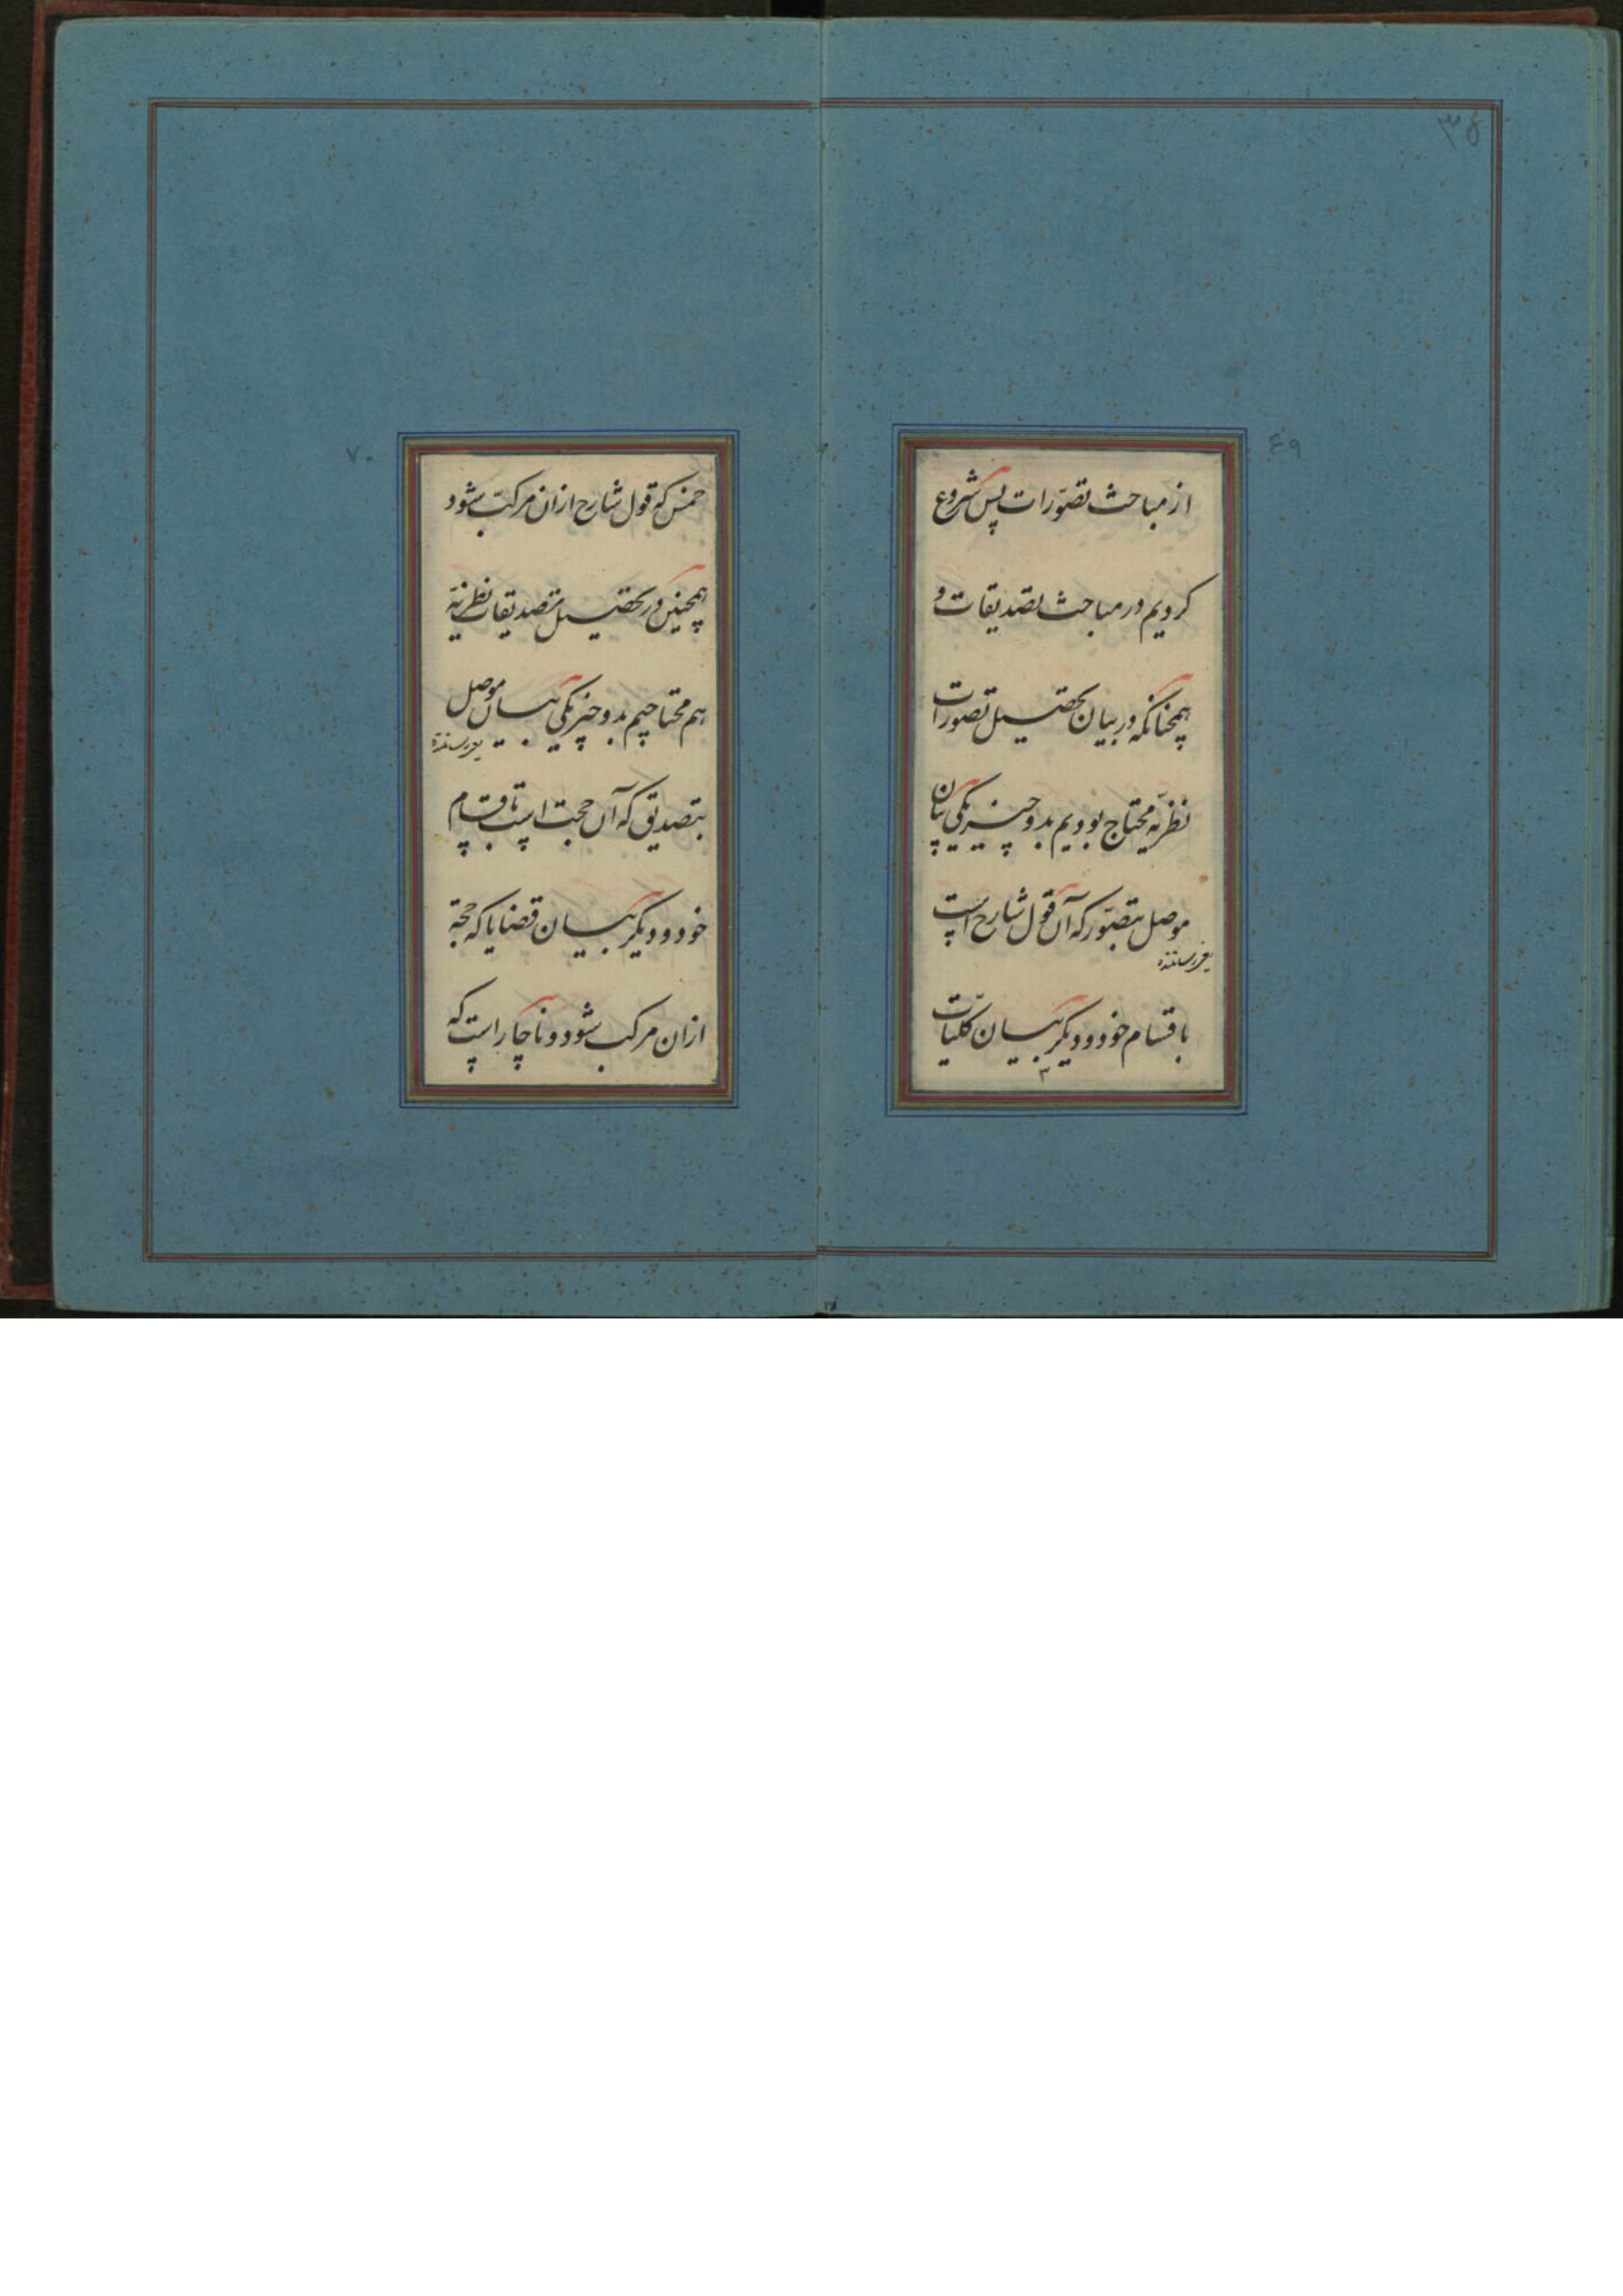 ۳۵
۶۹
از مباحث تصوّرات پس شروع
کردیم در مباحث تصدیقات و
همچنانکه در بیان تحصیل تصورات
نظریّه محتاج بودیم بدو چیز یکی بیان
موصل بتصوّر که آن قول شارح است
یعنی رساننده
باقسام خود و دیگر بیان کلیّات
۷۰
خمس که قول شارح ازان مرکّب شود
همچنین در تحصیل تصدیقات نظریّه
هم محتاجیم بدو چیز یکی بیان موصل
یعنی رساننده
بتصدیق که آن حجت است باقسام
خود و دیگر بیان قضایا که حجة
ازان مرکب شود و ناچار است که